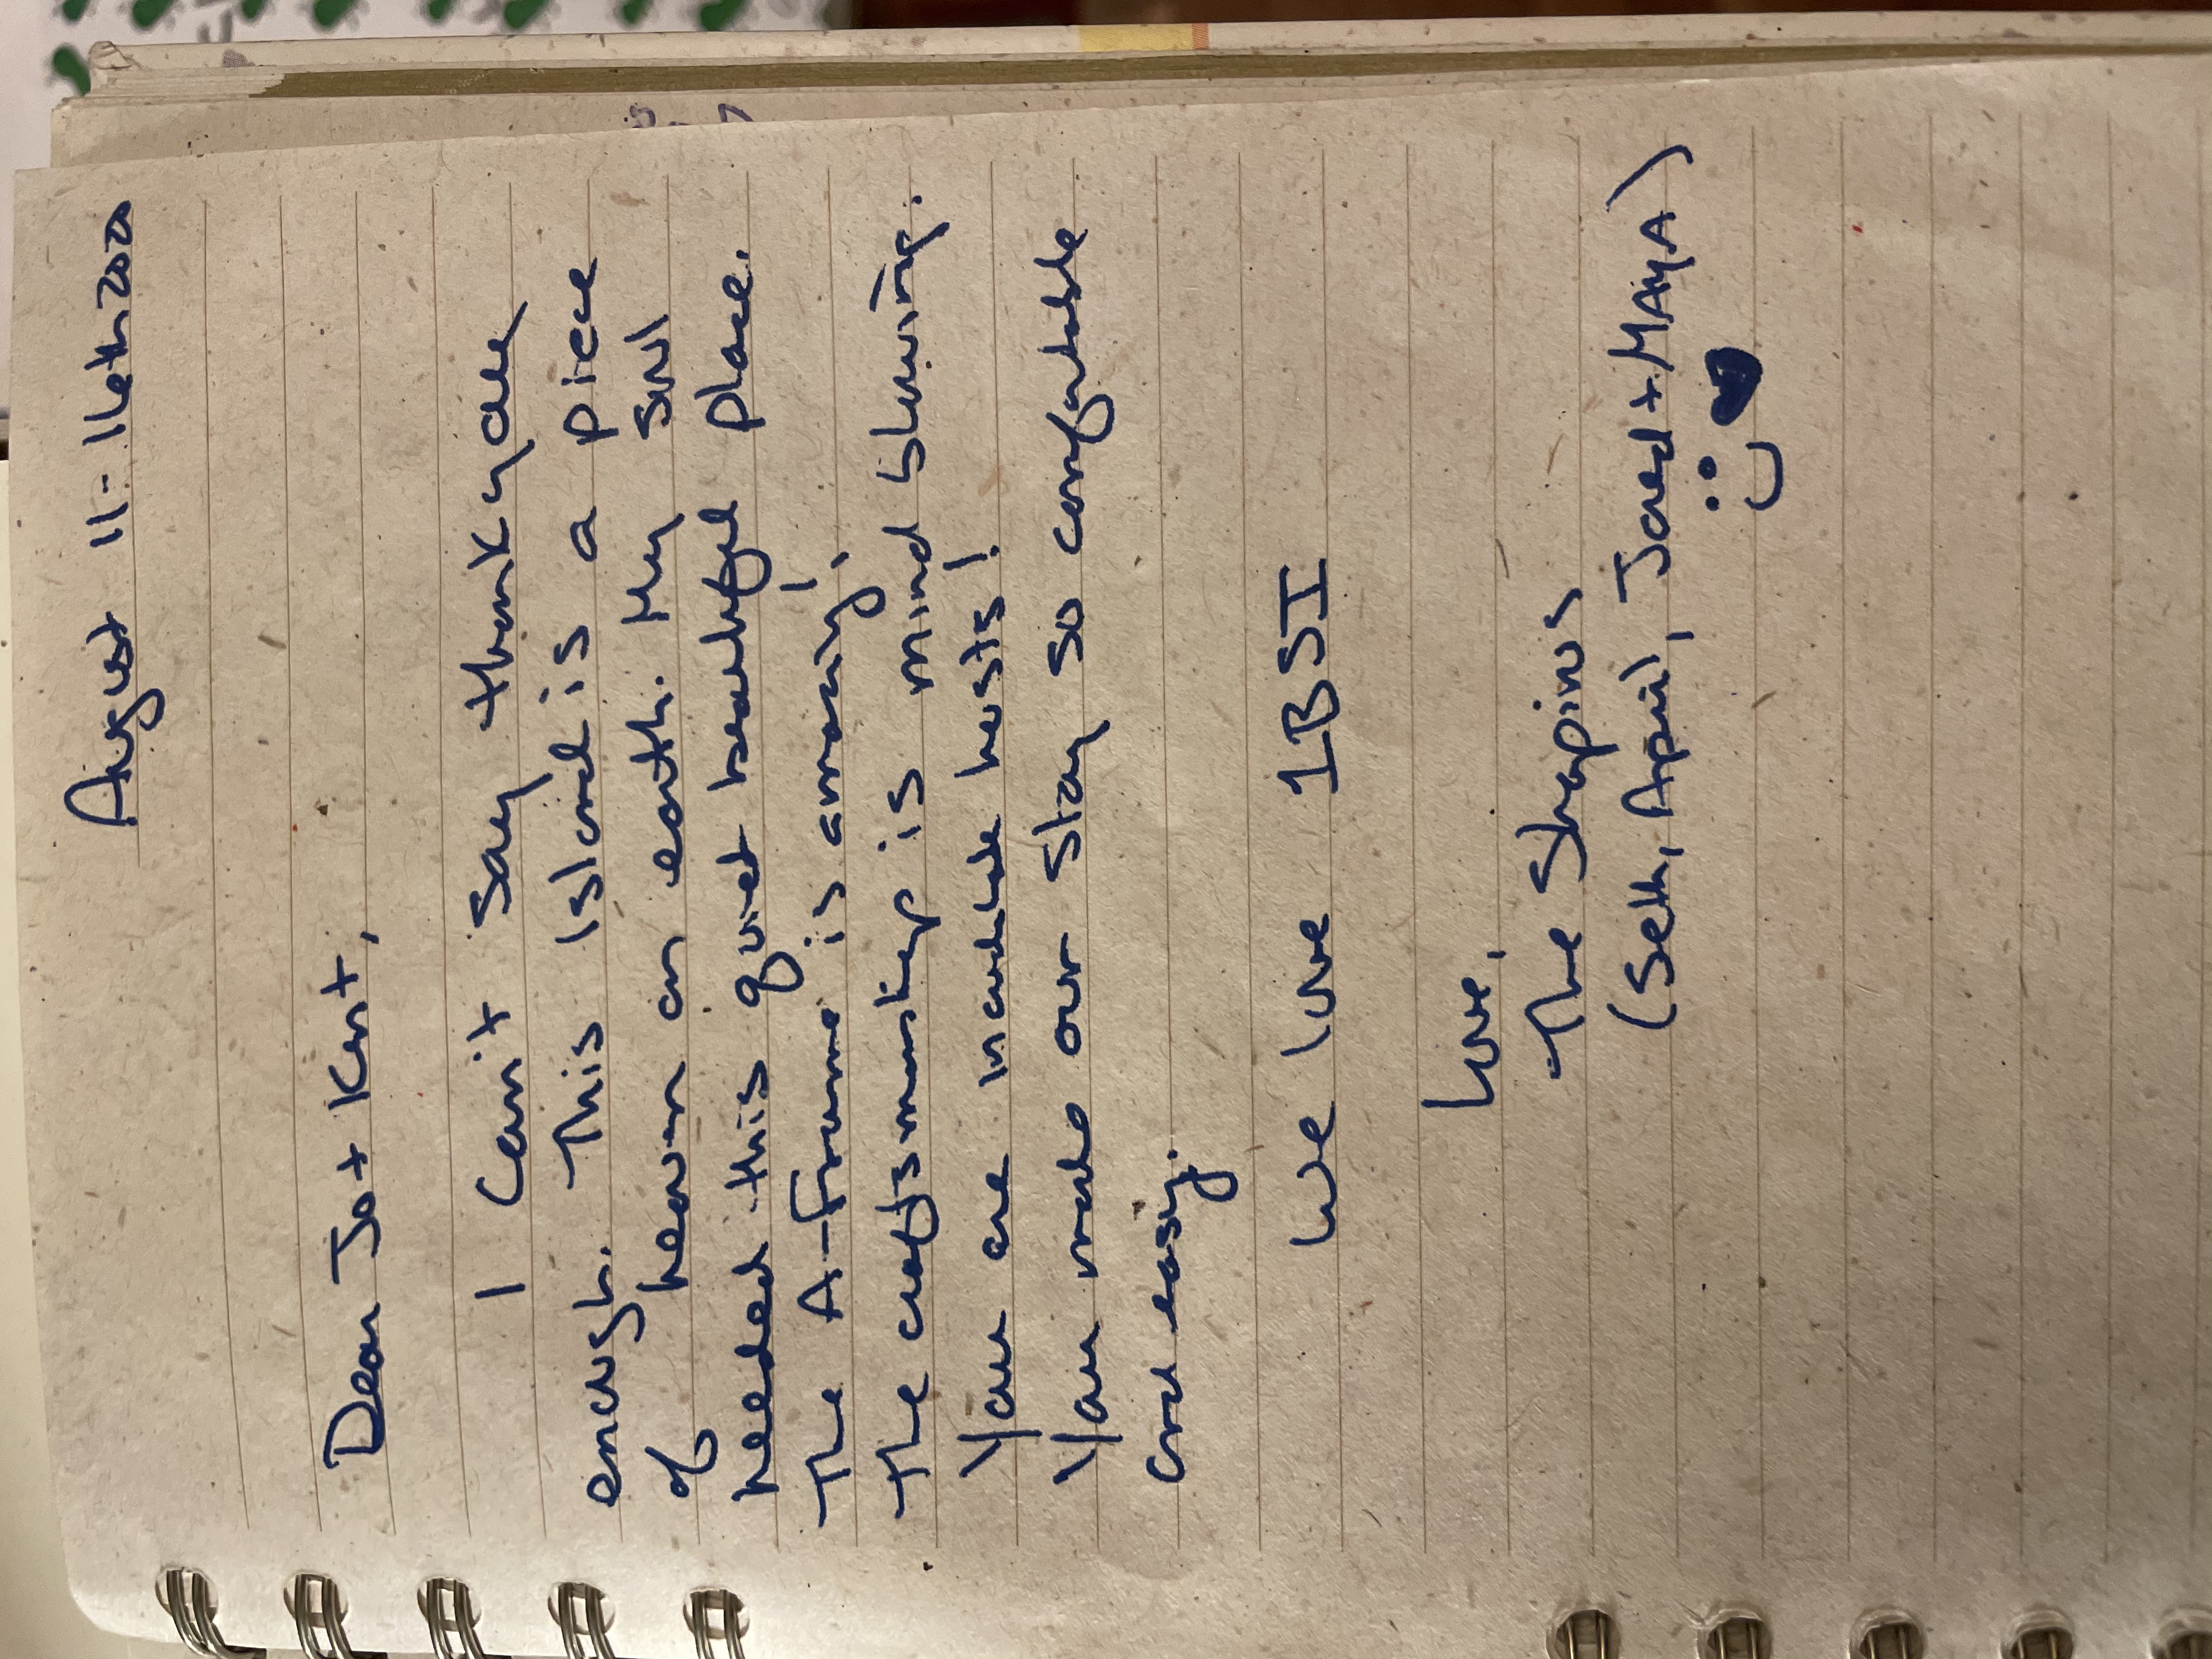 August 11-16th 2020
Dear Jo + Kent,
I can't say thank you
enough. This Island is a piece
of heaven on earth. My soul
needed this quiet beautiful place.
The A-Frame is amazing!
The craftsmanship is mind blowing.
You are incredible hosts!
You made our stay so comfortable
and easy.
We love 1BSI
Love,
The Shapiros
(Seth, April, Jared + MAYA)